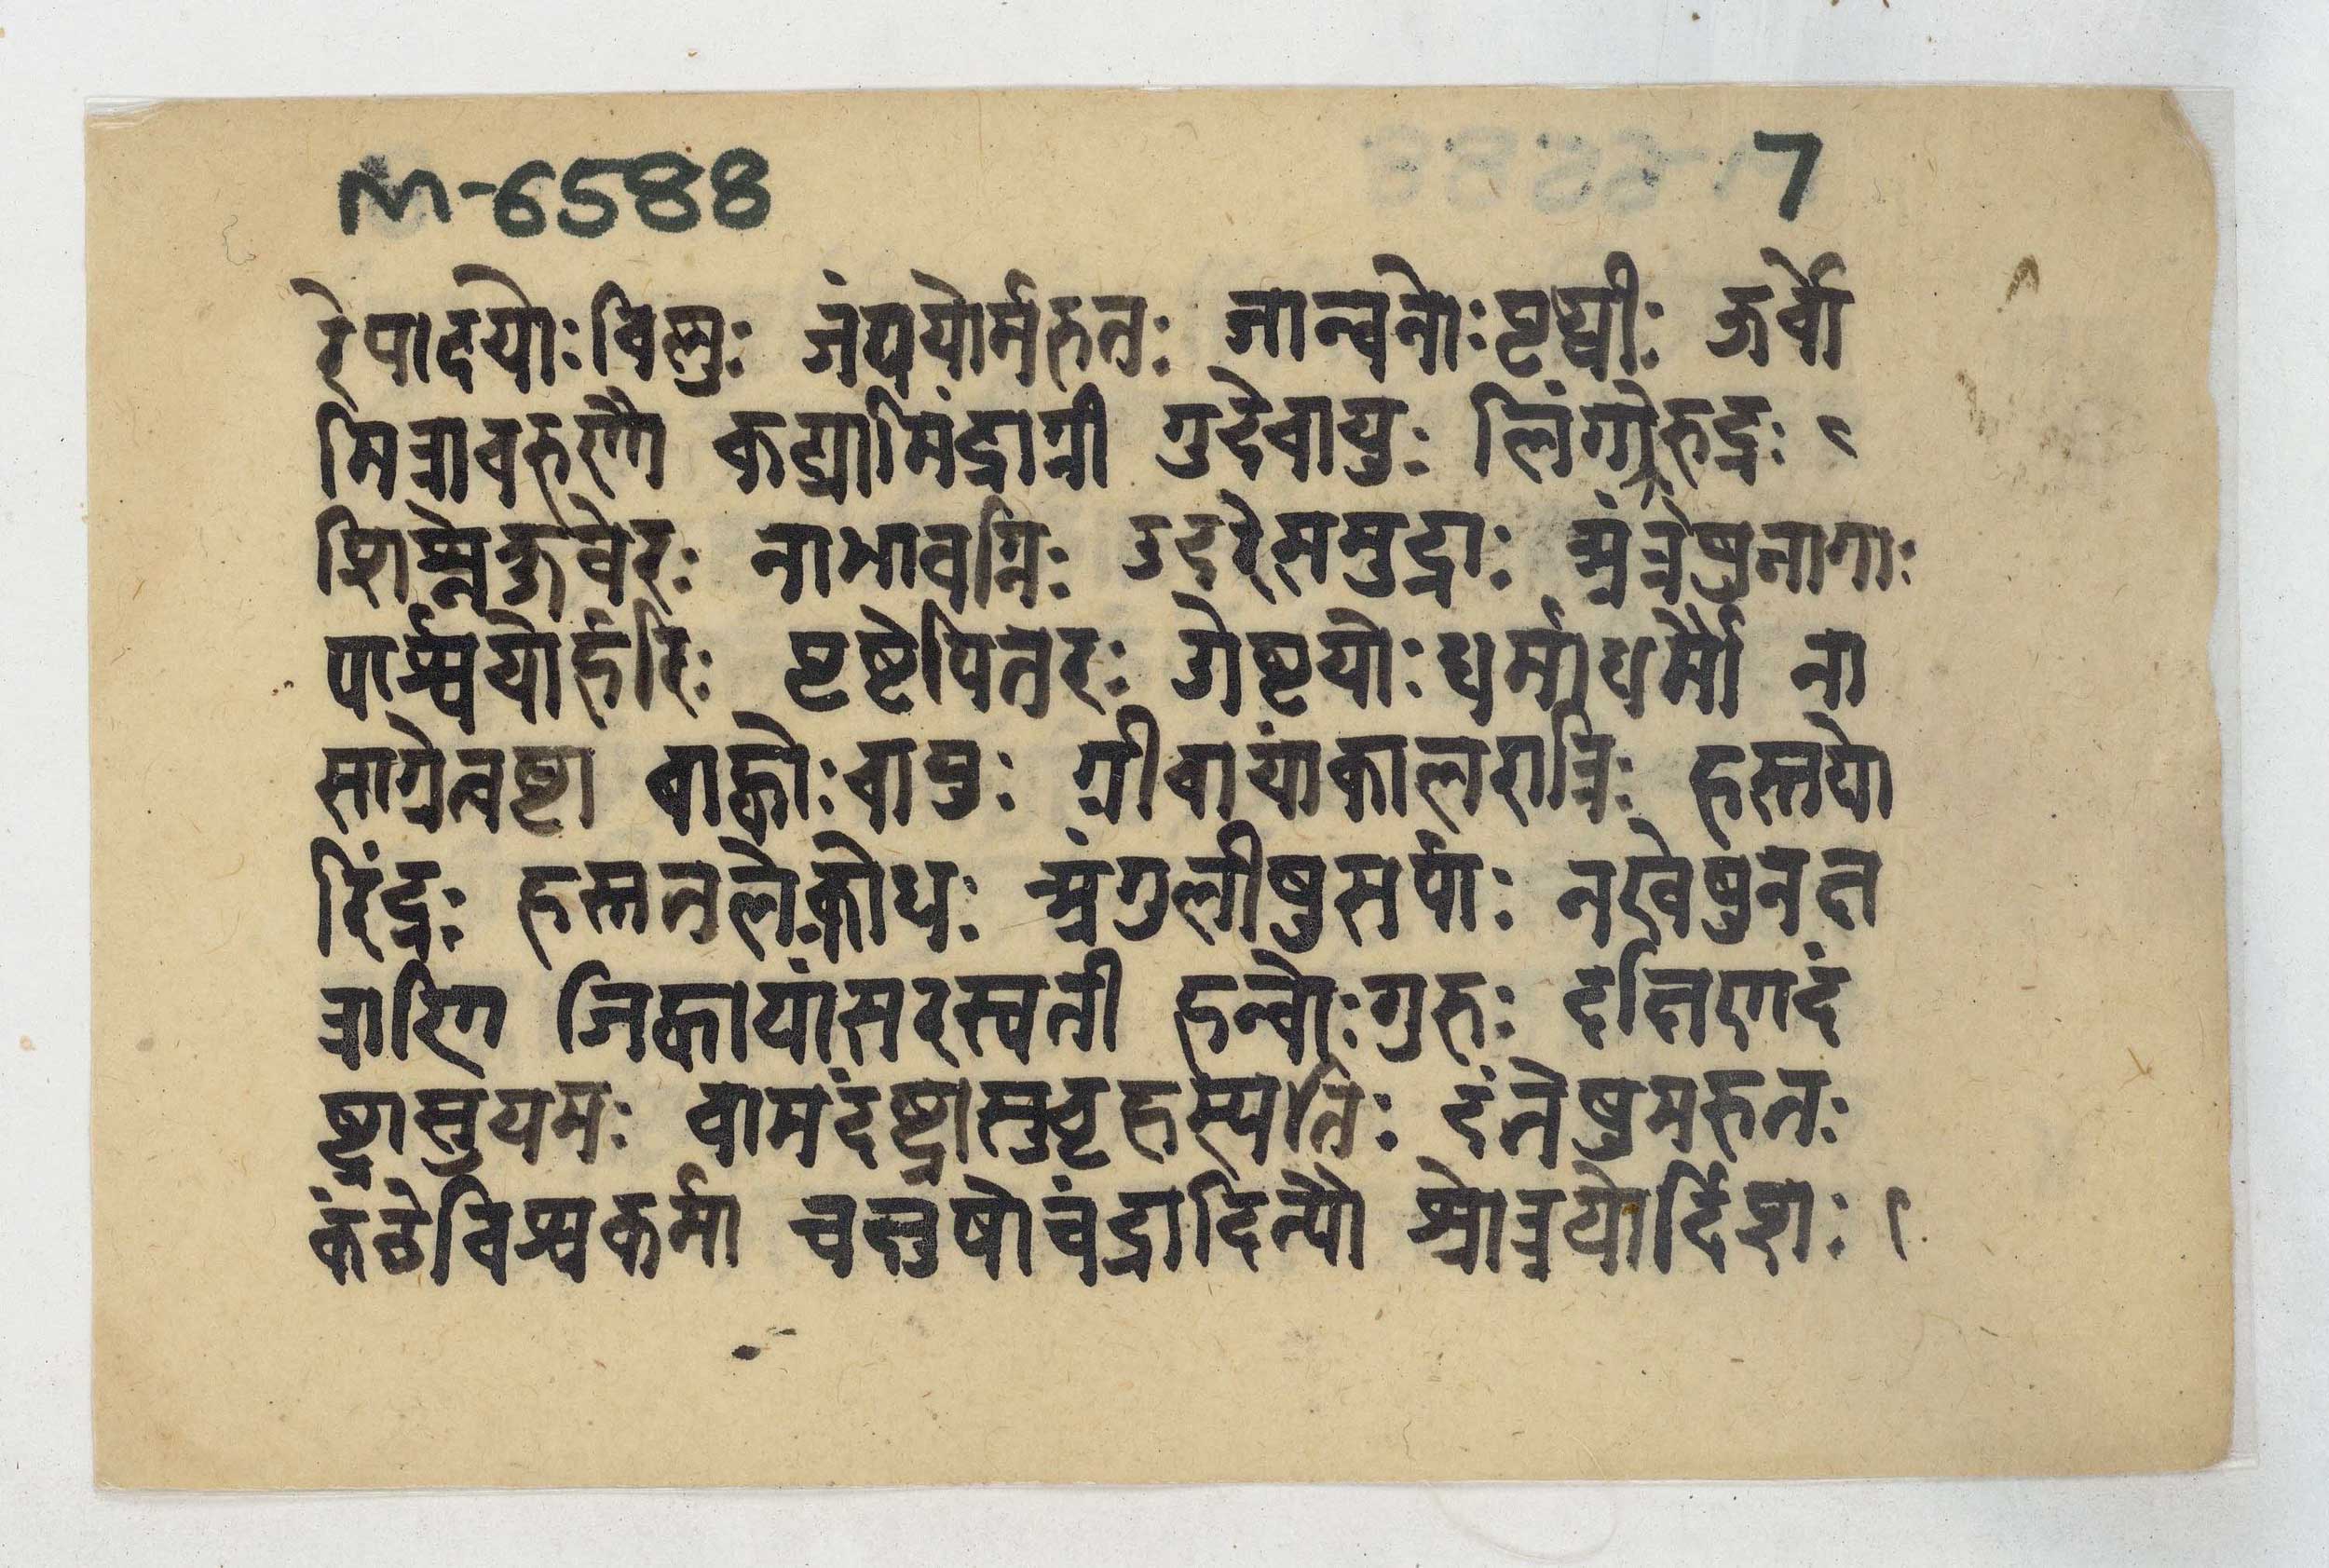 M-6588 7
रेपादयोःविष्णुः जंघयोर्मरुतः जान्वनोःपृथ्वीः ऊर्वो
मित्रावरुणौ कट्यामिंद्राग्नी गुदेवायुः लिंगेरुद्रः
शिश्नेकुबेरः नाभावग्निः उदरेसमुद्राः अंत्रेषुनागाः
पार्श्वयोर्हरिः पृष्टेपितरः ओष्टयोःधर्माधर्मौ ना
साग्रेत्वष्टा बाह्वोःवायुः ग्रीवायांकालरात्रिः हस्तयो
रिंद्रः हस्ततलेक्रोधः अंगुलीषुसर्पाः नखेषुनक्ष
त्राणि जिह्वायांसरस्वती हन्वोःगुरुः दक्षिणदं
ष्ट्रासुयमः वामदंष्ट्रासुवृहस्पतिः दंतेषुमरुतः
कंठेविश्वकर्मा चक्षुषोचंद्रादित्यौ श्रोत्रयोर्दिशः